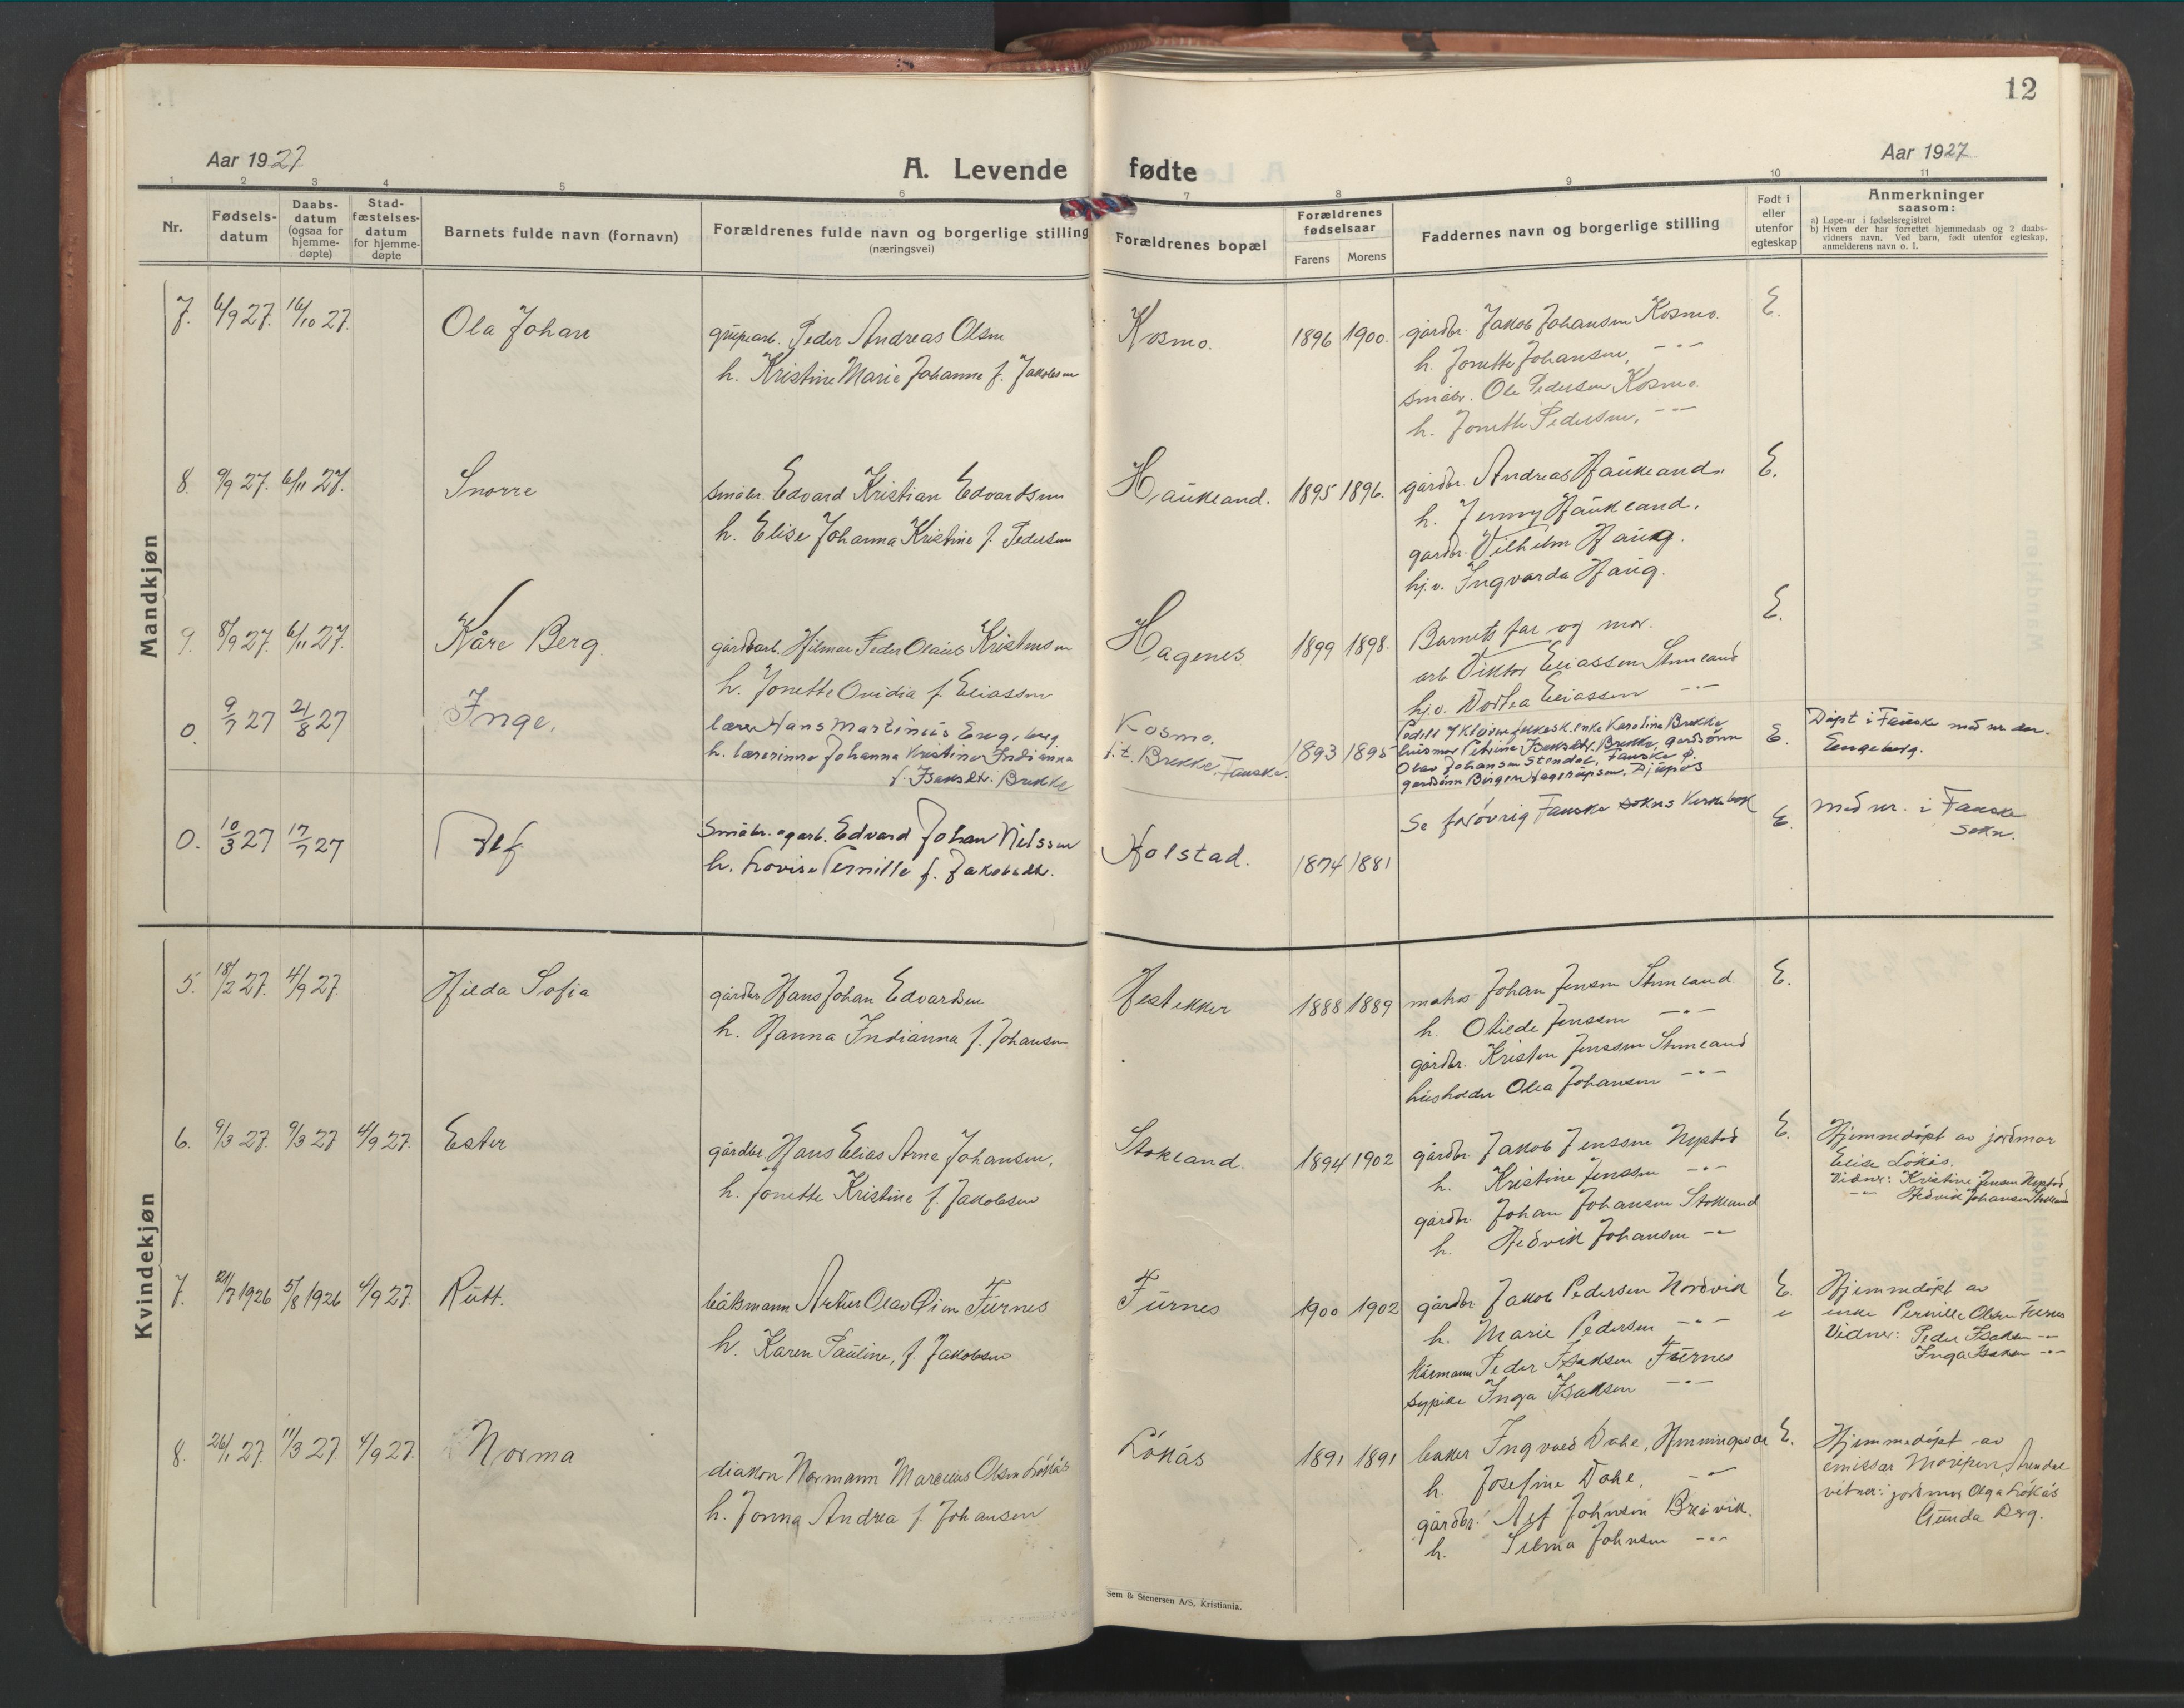 12
Aar 1927
A. Levende fødte
Aar 1927
1 2 3 4 5 6 7 8 9 10 11
Nr.
Fødsels-
datum
Daabs-
datum
(ogsaa for
hjemme-
døpte)
Stad-
fæstelses-
datum
for hjemme-
døpte
Barnets fulde navn (fornavn)
Forældrenes fulde navn og borgerlige stilling
(næringsvei)
Forældrenes bopæl
Forældrenes
fødselsaar
Farens Morens
Faddernes navn og borgerlige stilling
Født i
eller
utenfor
egteskap
Anmerkninger
saasom:
a) Løpe-nr i fødselsregistret
b) Hvem der har forrettet hjemmedaab og 2 daabs-
vidners navn. Ved barn, født utenfor egteskap,
anmelderens navn o. l.
Mandkjøn
7. 6/9 27. 16/10 27. Ola Johan
grubearb. Peder Andreas Olsen
h. Kristine Marie Johanne f. Jakobsen
Kosmo. 1896 1900.
gårdbr. Jakob Johansen Kosmo.
h. Jonette Johansen, -"-
småbr. Ole Pedersen Kosmo.
h. Jonette Pedersen, -"-
E.
8. 9/9 27. 6/11 27. Snorre
småbr. Edvard Kristian Edvardsen
h. Elise Johanna Kristine f. Pedersen
Haukland. 1895 1896.
gårdbr. Andreas Haukland.
h. Jenny Haukland.
gårdbr. Vilhelm Haug.
hj.v. Ingvarda Haug.
E.
9. 8/9 27. 6/11 27. Kåre Berg.
gårdarb. Hilmar Peder Olaus Kristensen
h. Jonette Ovidia f. Eliassen
Hagenes. 1899 1898.
Barnets far og mor.
arb. Viktor Eliassen Stenland
hj.v. Dortea Eliassen -"-
E.
0. 9/7 27 21/8 27 Inge.
lærer Hans Martinius Engeberg
h. lærerinne Johanna Kristine Indianna
f. Isaksdtr. Brekke
Kosmo.
f.t. Brekke, Fauske. 1893 1895
enke Karoline Brekke
husmor Petrine Isaksdtr. Brekke, gårdsönn
Olav Johansen Stendal, Fauske P.
gårdsönn Birger Hagerupsen, Djupos
E.
Döpt i Fauske med nr. der.
Engeberg.
0. 10/3 27 17/7 27 Alf
Småbr. og arb. Edvard Johan Nilssen
h. Lovise Pernille f. Jakobsdtr.
Holstad. 1874 1881
Se forövrig Fauske sokns kirkebok
E.
med nr. i Fauske
sokn.
Kvindekjøn
5. 18/2 27. 4/9 27. Hilda Sofia
gårdbr. Hans Johan Edvardsen
h. Hanna Indianna f. Johansen
Hestekker 1888 1889
Johan Jensen Stenland.
h. Otilde Jenssen -"-
gårdbr. Kristen Jenssen Stenland
husholder Olea Johansen -"-
E.
6. 9/3 27. 9/3 27 4/9 27. Ester
gårdbr. Hans Elias Arne Johansen,
h. Jonette Kristine f. Jakobsen
Stokland. 1894 1902
gårdbr. Jakob Jenssen Nystad
h. Kristine Jenssen -"-
gårdbr. Johan Johansen Stokland
h. Hedvik Johansen -"-
E.
Hjemmedöpt av jordmor
Elise Lökås.
Vidner: Kristine Jensen Nystad
-"- Hedvik Johansen Stokland
7. 21/7 1926 5/8 1926 4/9 27. Rutt.
båtsmann Artur Olav Öien Furnes
h. Karen Pauline, f. Jakobsen
Furnes 1900 1902
gårdbr. Jakob Pedersen Nordvik
h. Marie Pedersen -"-
kårmann Peder Isaksen Furnes
sypike Inga Isaksen -"-
E.
"
Hjemmedöpt av
enke Pernille Olsen Furnes
Vidner: Peder Isaksen -"-
Inga Isaksen -"-
8. 26/1 27. 11/3 27. 4/9 27. Norma
diakon Normann Marelius Olsen Lökås
h. Jonna Andrea f. Johansen
Lökås 1891 1891
baker Ingvald Dahe, Henningsvær
h. Josefine Dahe, -"-
gårdbr. Alf Johnsen Breivik.
h. Selma Johnsen -"-
E.
Hjemmedöpt av
emissær
vitner: jordmor Olga Lökås
Gunda Berg.
Sem & Stenersen A/S, Kristiania.